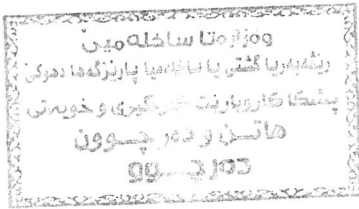 وەزارەتا ساخلەمیێ
رێڤەبەریا گشتی یا ساخلەمیا پارێزگەها دهوکێ
پشکا کاروبارێن کارگێری و خویەتی
هاتن و دەرچوون
دەرچوو